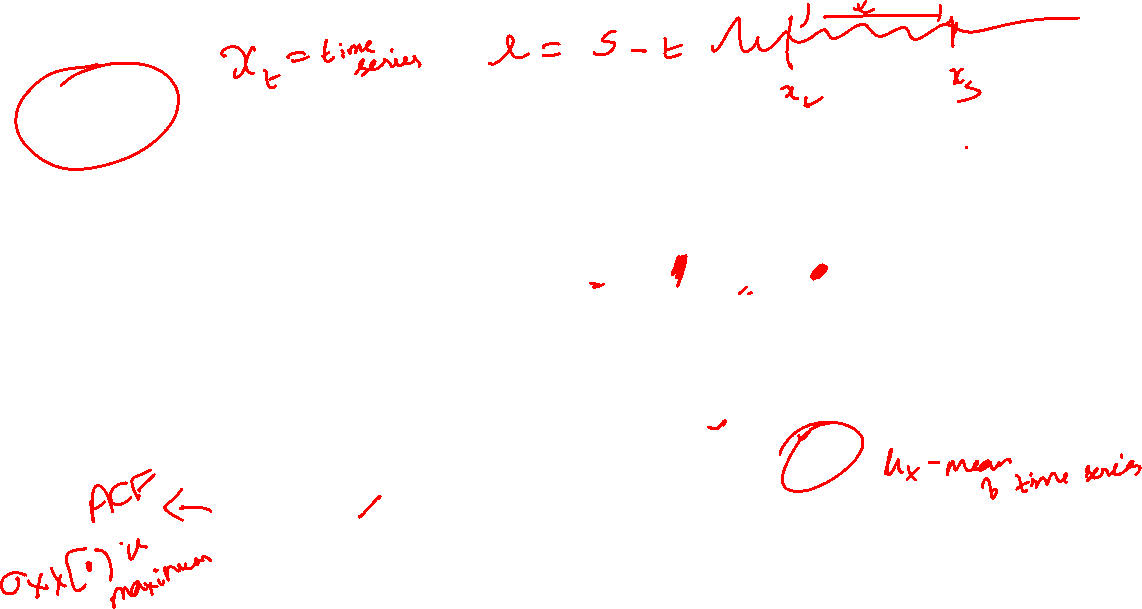 x_t = time series
l = s - t
l
x_t
x_s
μ_x - mean of time series
ACF ←
σxx[0] is maximum